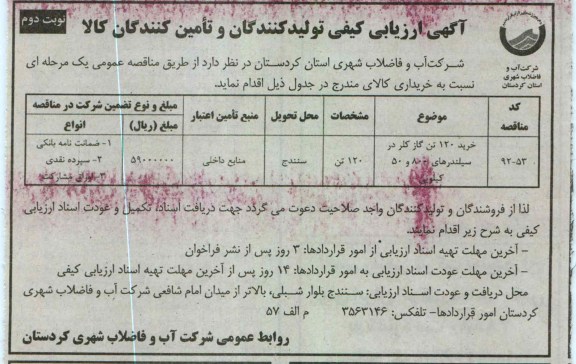 نوبت دوم
آگهی ارزیابی کیفی تولیدکنندگان و تأمین کنندگان کالا
شرکت آب و
فاضلاب شهری
استان کردستان
شرکت آب و فاضلاب شهری استان کردستان در نظر دارد از طریق مناقصه عمومی یک مرحله ای
نسبت به خریداری کالای مندرج در جدول ذیل اقدام نماید.
کد مناقصه
موضوع
مشخصات
محل تحویل
منبع تأمین اعتبار
مبلغ و نوع تضمین شرکت در مناقصه
مبلغ (ریال)
انواع
۹۲-۵۳
خرید ۱۲۰ تن گاز کلر در
سیلندرهای ۸۰۰ و ۵۰
کیلویی
۱۲۰ تن
سنندج
منابع داخلی
۵۹۰۰۰۰۰۰
۱- ضمانت نامه بانکی
۲- سپرده نقدی
۳- اوراق مشارکت
لذا از فروشندگان و تولیدکنندگان واجد صلاحیت دعوت می گردد جهت دریافت اسناد، تکمیل و عودت اسناد ارزیابی
کیفی به شرح زیر اقدام نمایند.
- آخرین مهلت تهیه اسناد ارزیابی از امور قراردادها: ۳ روز پس از نشر فراخوان
- آخرین مهلت عودت اسناد ارزیابی به امور قراردادها: ۱۴ روز پس از آخرین مهلت تهیه اسناد ارزیابی کیفی
محل دریافت و عودت اسناد ارزیابی: سنندج بلوار شبلی، بالاتر از میدان امام شافعی شرکت آب و فاضلاب شهری
کردستان امور قراردادها- تلفکس: ۳۵۶۳۱۴۶ م الف ۵۷
روابط عمومی شرکت آب و فاضلاب شهری کردستان